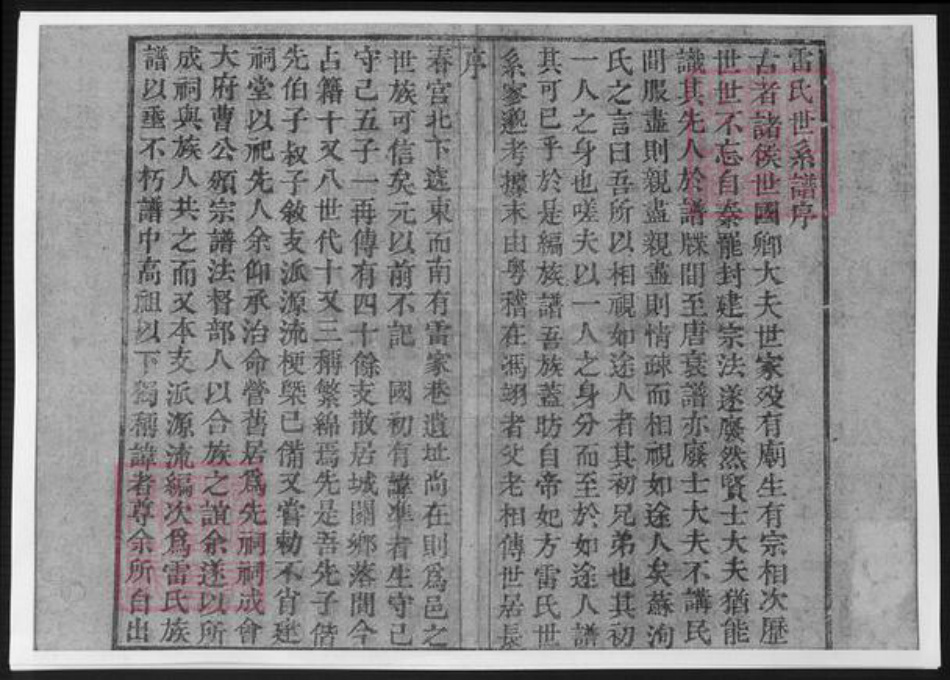 雷氏世系譜序
古者諸侯世國卿大夫世家歿有廟生有宗相次歷
世世不忘自秦罷封建宗法遂廢然賢士大夫猶能
識其先人於譜牒間至唐衰譜亦廢士大夫不講民
間服盡則親盡親盡則情疎而相視如途人矣蘇洵
氏之言曰吾所以相視如途人者其初兄弟也其初
一人之身也嗟夫以一人之身分而至於如途人譜
其可已乎於是編族譜吾族蓋昉自帝妃方雷氏世
系寥邈考據末由粵稽在馮翊者父老相傳世居長
序
春宮北下遠東而南有雷家巷遺址尚在則為邑之
世族可信矣元以前不記 國初有諱準者生守己
守己五子一再傳有四十餘支散居城關鄉落間今
占籍十又八世代十又三稱繁綿焉先是吾先子偕
先伯子叔子敘支派源流梗槩已備又嘗勅不肖建
祠堂以祀先人余仰承治命營舊居為先祠祠成會
大府曹公頒宗譜法督部人以合族之誼余遂以所
成祠與族人共之而又本支派源流編次為雷氏族
譜以垂不朽譜中高祖以下獨稱諱者尊余所自出